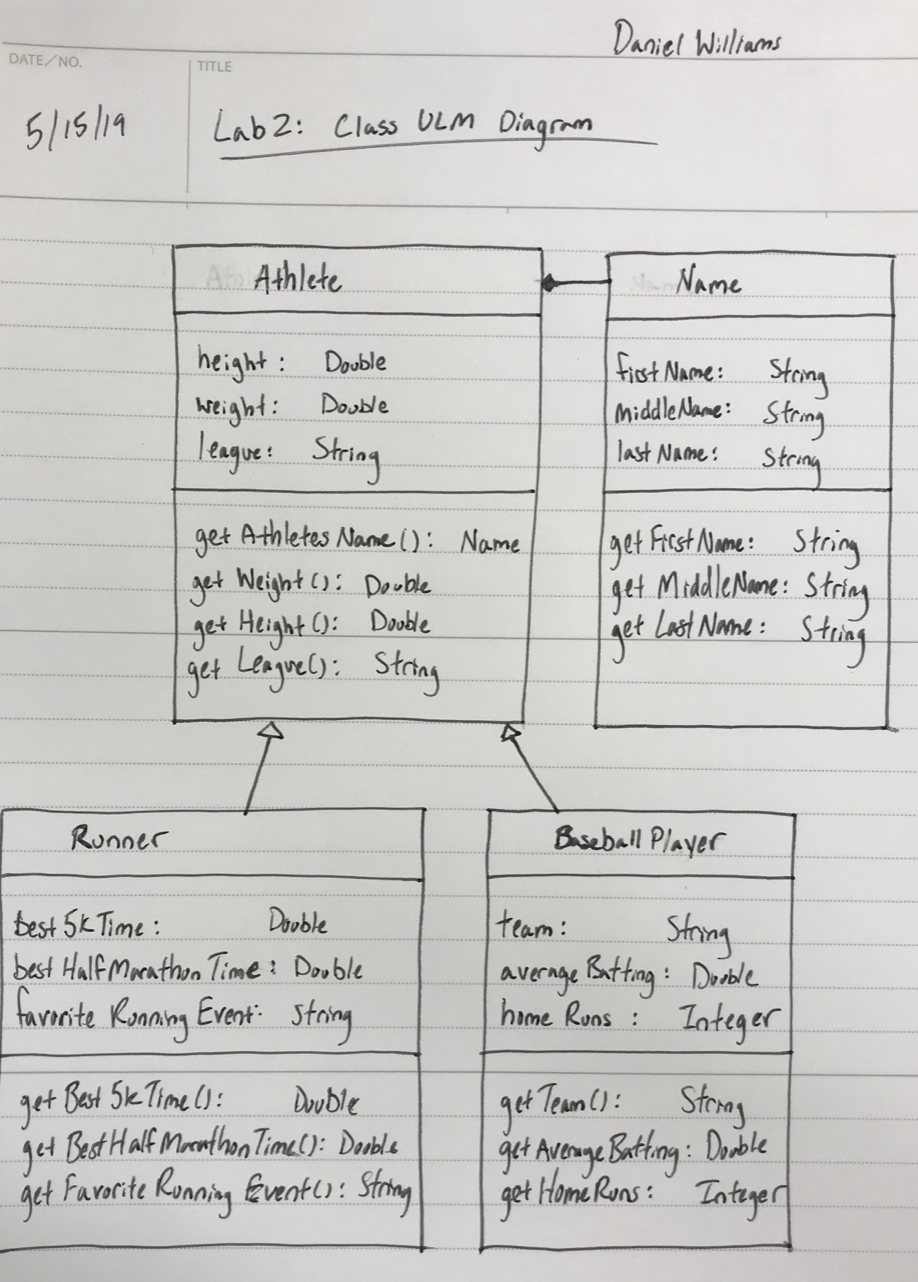 Daniel Williams
DATE/NO.
TITLE
5/15/19
Lab 2: Class ULM Diagram
Athlete
height: Double
weight: Double
league: String
getAthletesName(): Name
getWeight(): Double
getHeight(): Double
getLeague(): String
Name
firstName: String
middleName: String
lastName: String
getFirstName: String
getMiddleName: String
getLastName: String
Runner
best5kTime: Double
bestHalfMarathonTime: Double
favoriteRunningEvent: String
getBest5kTime(): Double
getBestHalfMarathonTime(): Double
getFavoriteRunningEvent(): String
Baseball Player
team: String
averageBatting: Double
homeRuns: Integer
getTeam(): String
getAverageBatting: Double
getHomeRuns: Integer